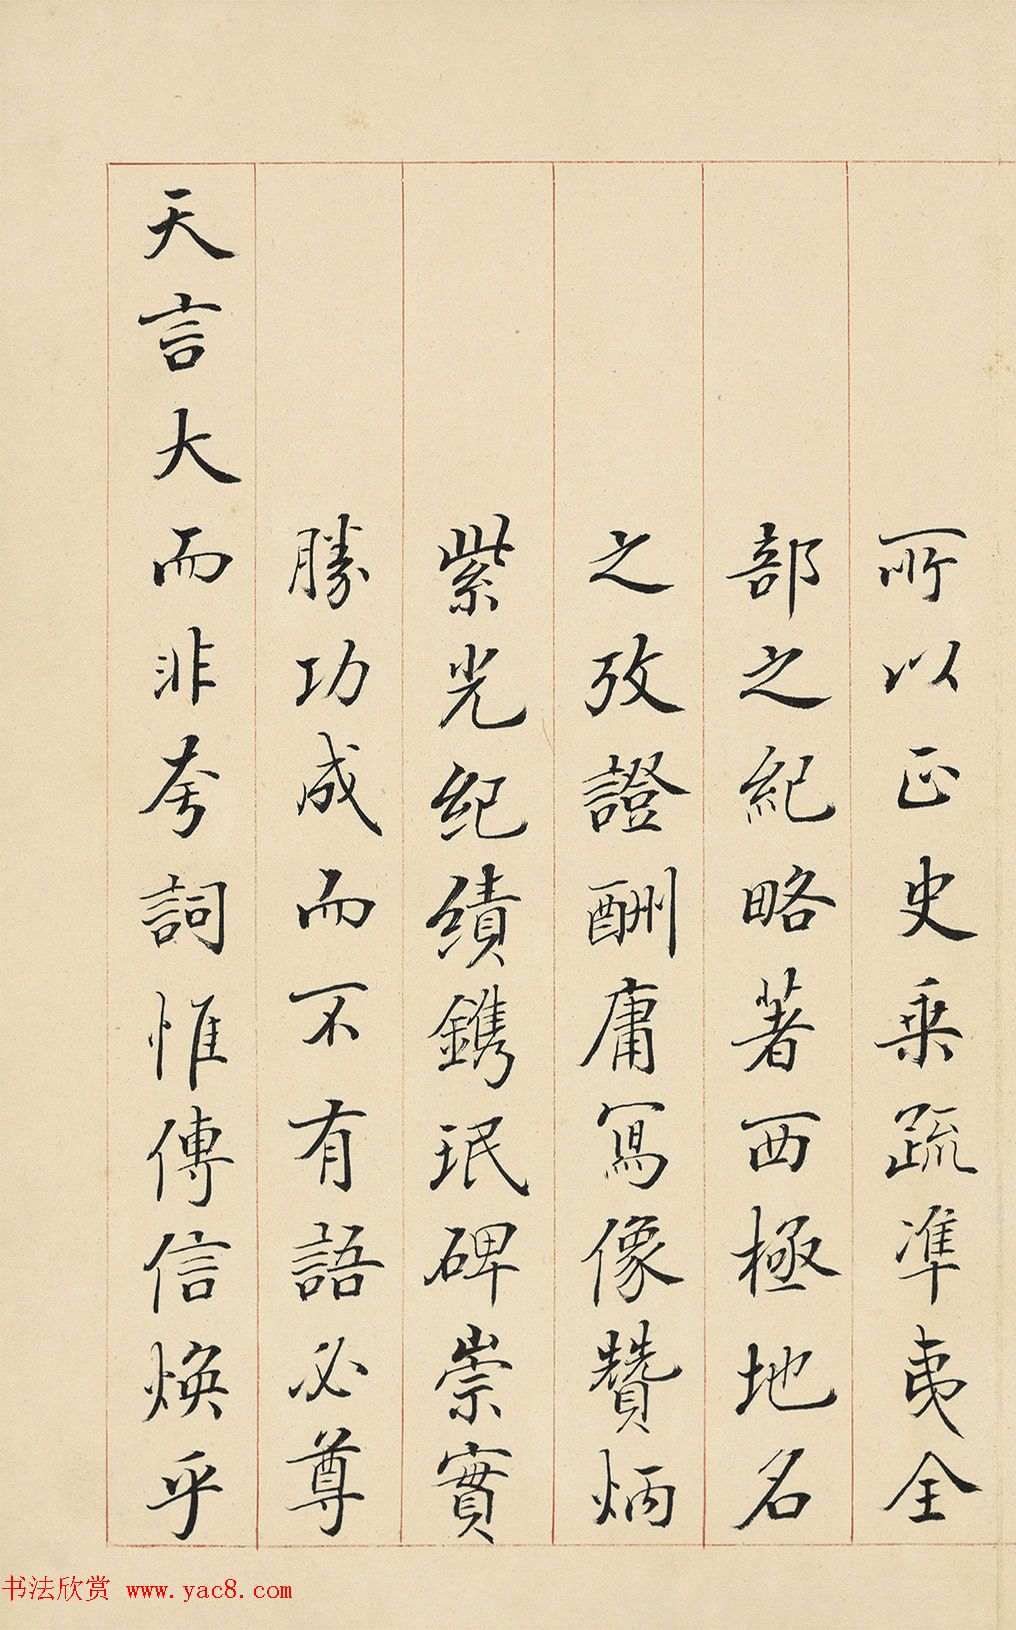 所以正史乘疏準夷全
部之紀略著西極地名
之攷證酬庸寫像贊炳
紫光紀績鐫珉碑崇實
勝功成而不有語必尊
天言大而非夸詞惟傳信煥乎
书法欣赏 www.yac8.com